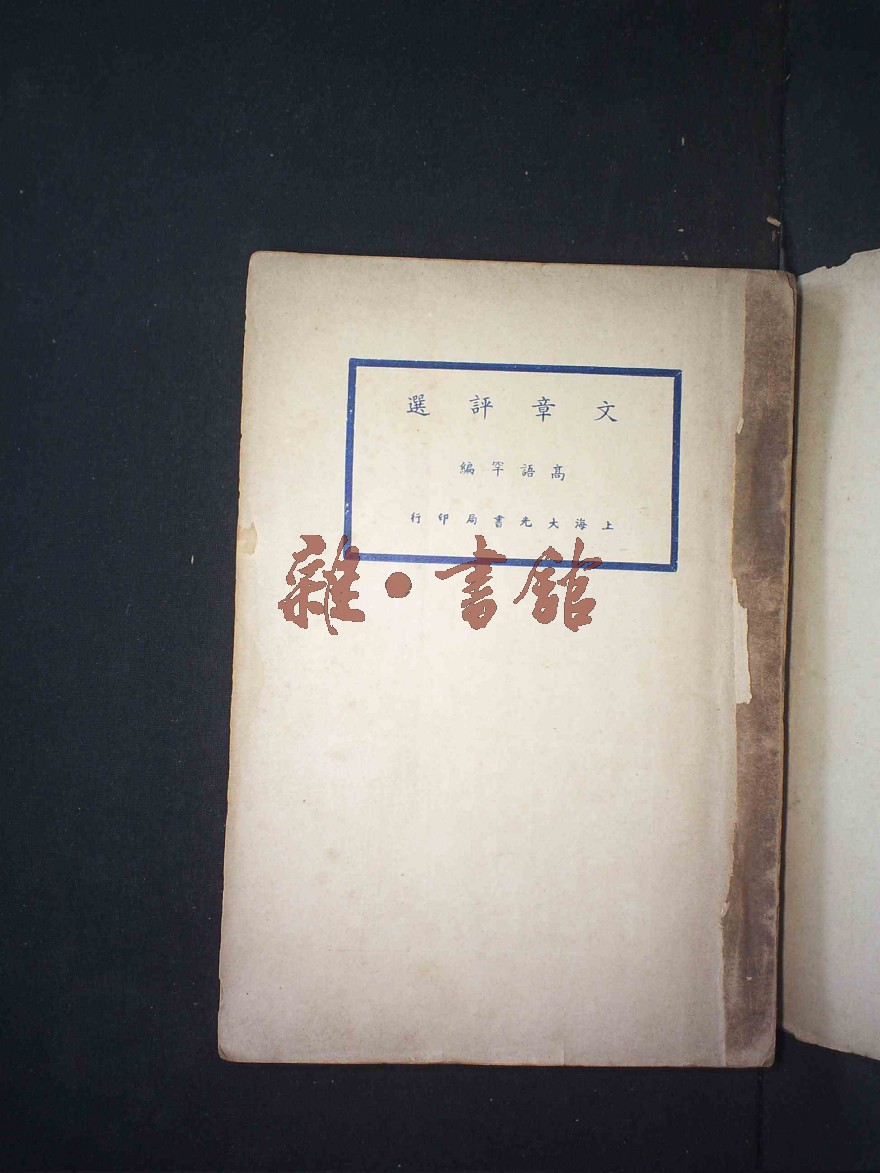 文章評選
高語罕編
上海大光書局印行
雜·書館